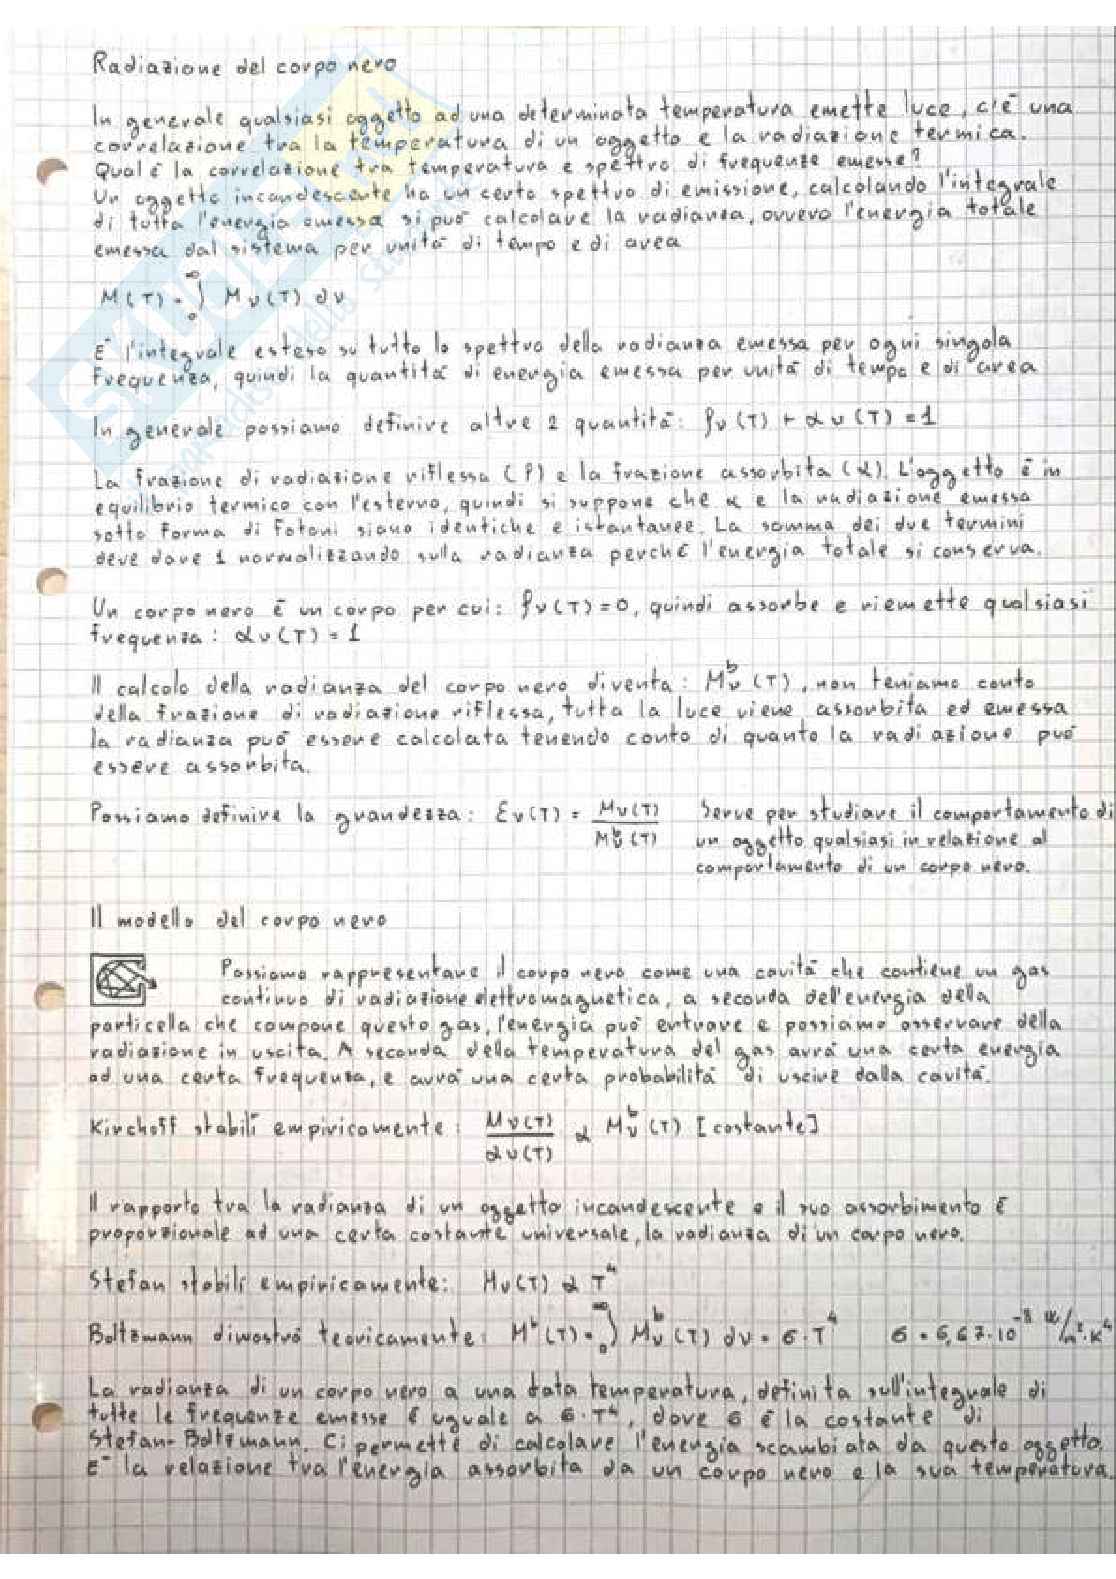 Radiazione del corpo nero
In generale qualsiasi oggetto ad una determinata temperatura emette luce, c'è una
correlazione tra la temperatura di un oggetto e la radiazione termica.
Qual è la correlazione tra temperatura e spettro di frequenze emesse?
Un oggetto incandescente ha un certo spettro di emissione, calcolando l'integrale
di tutta l'energia emessa si può calcolare la radianza, ovvero l'energia totale
emessa dal sistema per unità di tempo e di area
M(T) = ∫₀^∞ Mν(T) dν
È l'integrale esteso su tutto lo spettro della radianza emessa per ogni singola
frequenza, quindi la quantità di energia emessa per unità di tempo e di area
In generale possiamo definire altre 2 quantità: ρν(T) + αν(T) = 1
La frazione di radiazione riflessa (ρ) e la frazione assorbita (α). L'oggetto è in
equilibrio termico con l'esterno, quindi si suppone che α e la radiazione emessa
sotto forma di fotoni siano identiche e istantanee. La somma dei due termini
deve dare 1 normalizzando sulla radianza perché l'energia totale si conserva.
Un corpo nero è un corpo per cui: ρν(T) = 0, quindi assorbe e riemette qualsiasi
frequenza: αν(T) = 1
Il calcolo della radianza del corpo nero diventa: Mᵇν(T), non teniamo conto
della frazione di radiazione riflessa, tutta la luce viene assorbita ed emessa
la radianza può essere calcolata tenendo conto di quanto la radiazione può
essere assorbita.
Possiamo definire la grandezza: εν(T) = Mν(T) / Mᵇν(T) Serve per studiare il comportamento di
un oggetto qualsiasi in relazione al
comportamento di un corpo nero.
Il modello del corpo nero
Possiamo rappresentare il corpo nero come una cavità che contiene un gas
continuo di radiazione elettromagnetica, a seconda dell'energia della
particella che compone questo gas, l'energia può entrare e possiamo osservare della
radiazione in uscita. A seconda della temperatura del gas avrà una certa energia
ad una certa frequenza, e avrà una certa probabilità di uscire dalla cavità.
Kirchoff stabilì empiricamente: Mν(T) / αν(T) α Mᵇν(T) [costante]
Il rapporto tra la radianza di un oggetto incandescente e il suo assorbimento è
proporzionale ad una certa costante universale, la radianza di un corpo nero.
Stefan stabilì empiricamente: Mν(T) α T⁴
Boltzmann dimostrò teoricamente: Mᵇ(T) = ∫₀^∞ Mᵇν(T) dν = σ·T⁴ σ = 5,67·10⁻⁸ W/m²·K⁴
La radianza di un corpo nero a una data temperatura, definita sull'integrale di
tutte le frequenze emesse è uguale a σ·T⁴, dove σ è la costante di
Stefan-Boltzmann. Ci permette di calcolare l'energia scambiata da questo oggetto.
È la relazione tra l'energia assorbita da un corpo nero e la sua temperatura.